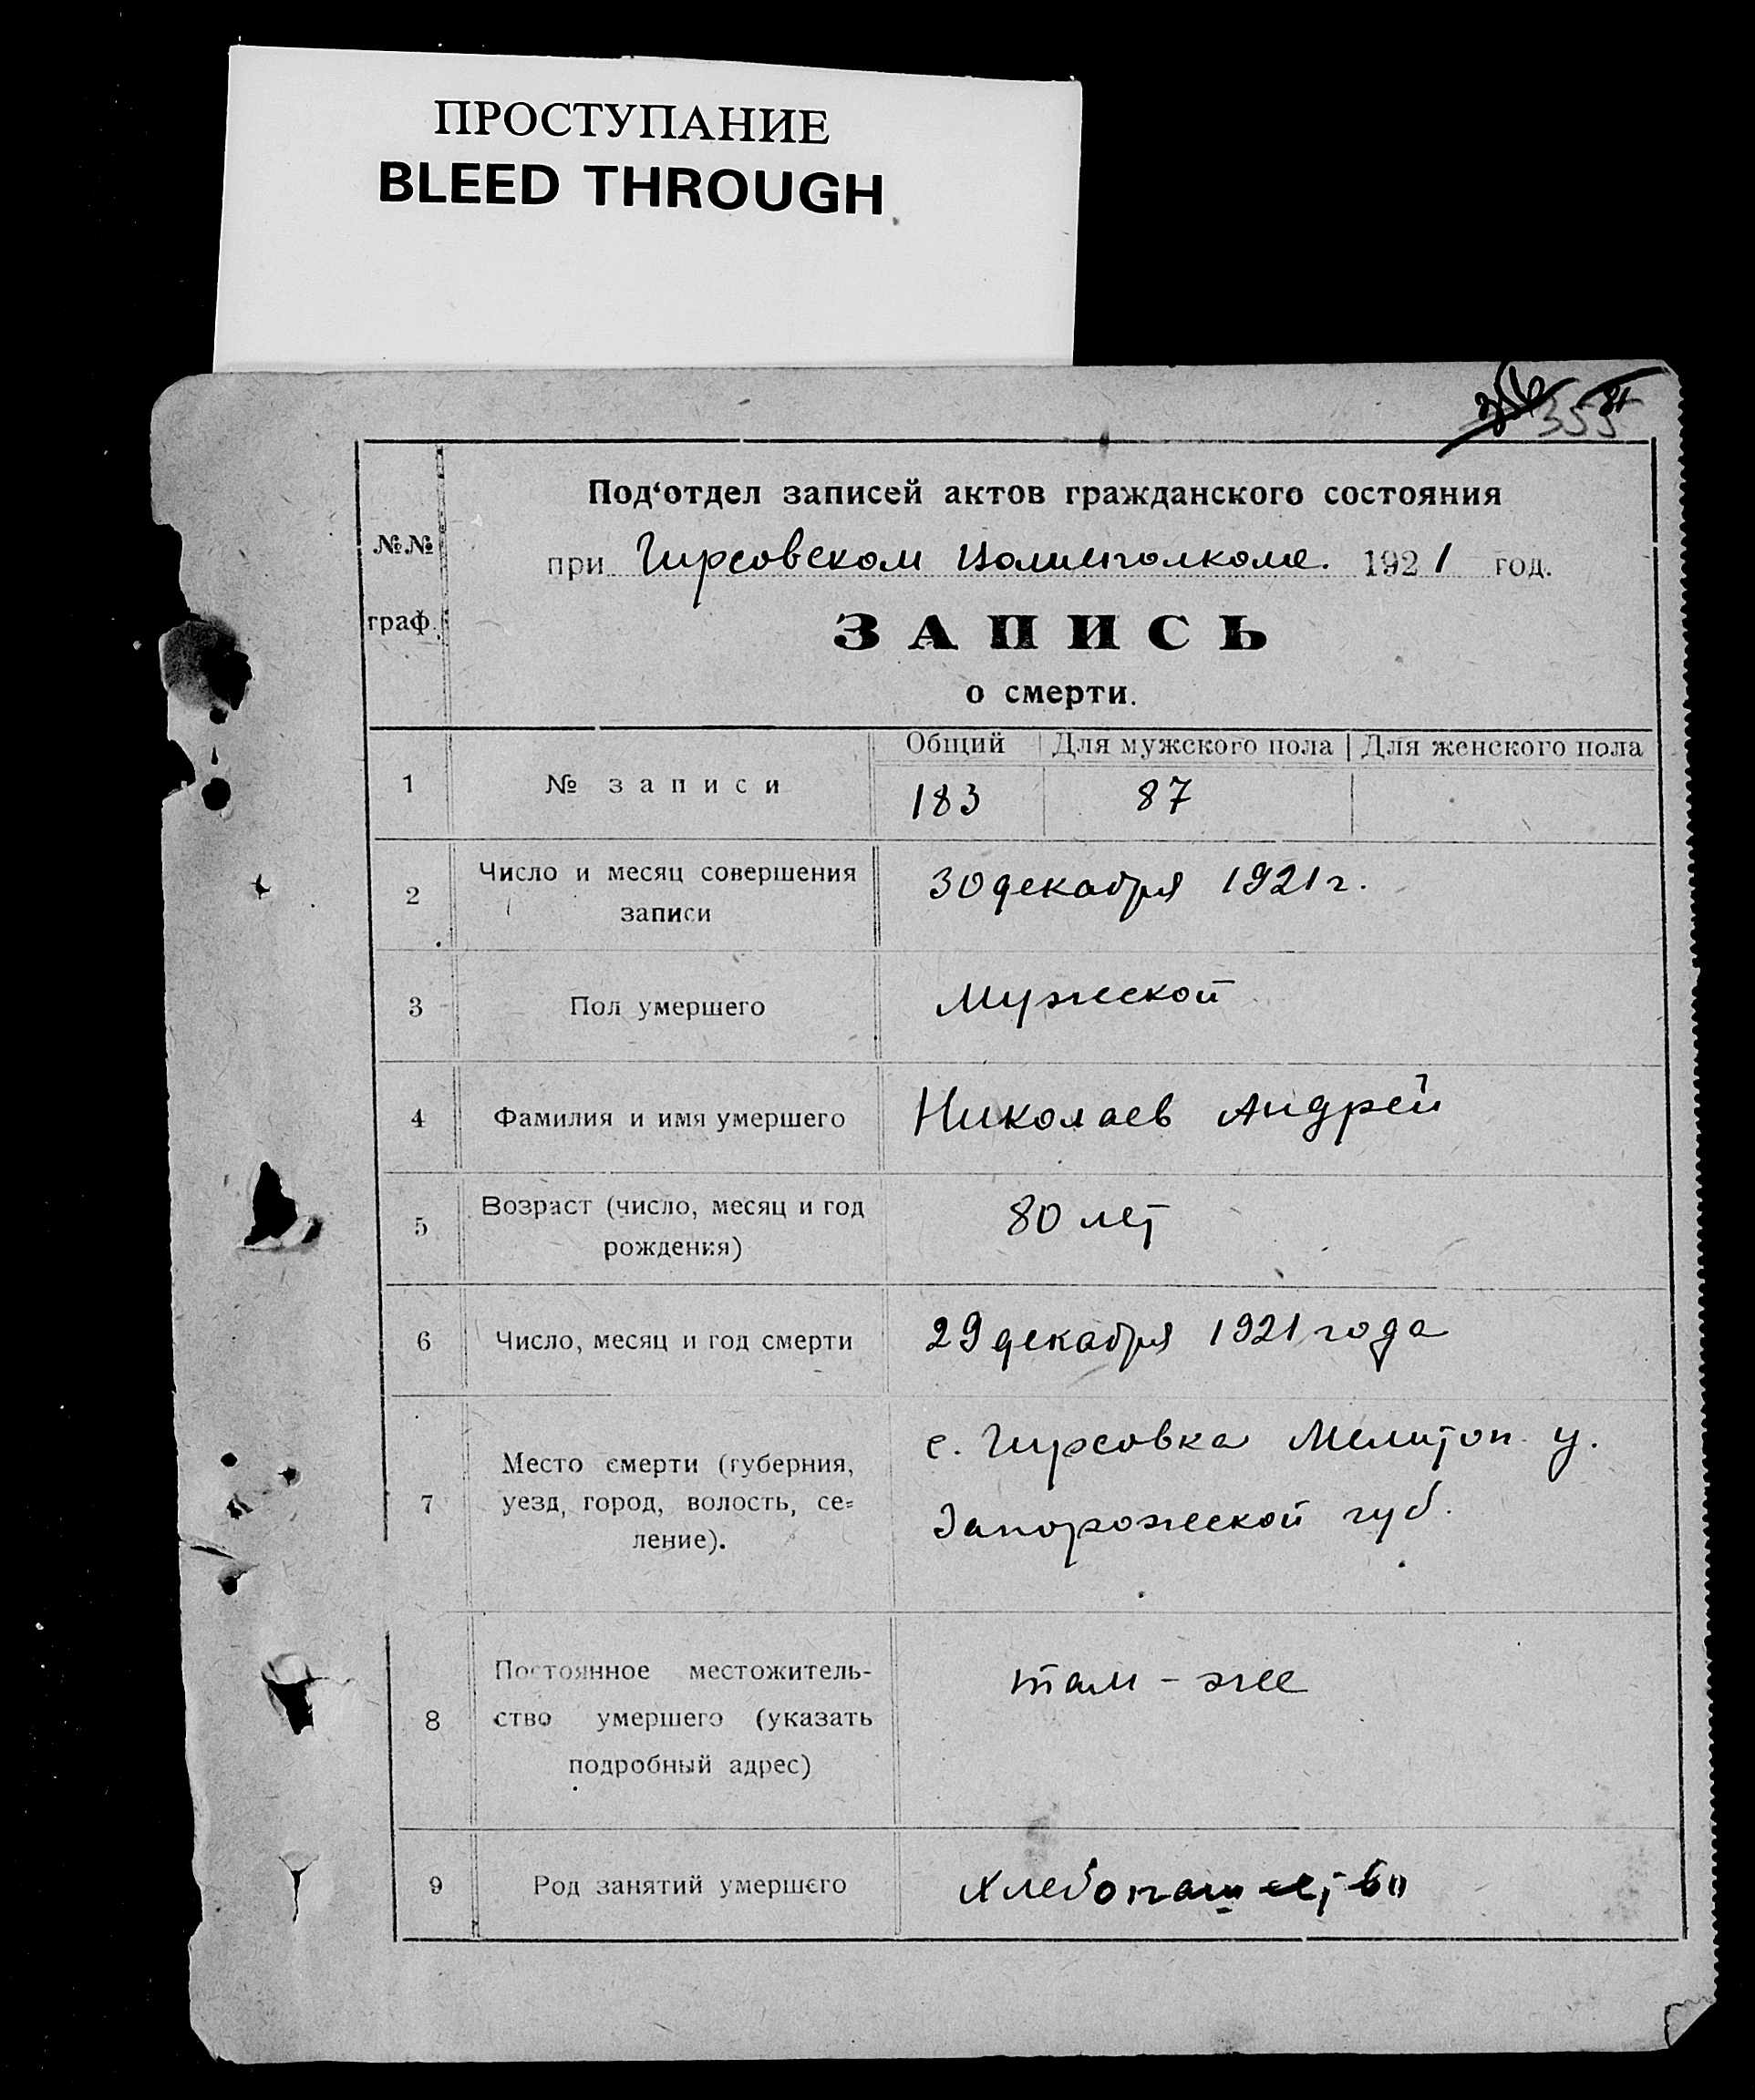 ПРОСТУПАНИЕ
BLEED THROUGH
355
№№
граф.
Под‘отдел записей актов гражданского состояния
при Гирсовском 1921 год.
ЗАПИСЬ
о смерти.
Общий Для мужского пола Для женского пола
1 № записи 183 87
2 Число и месяц совершения
записи
30 декабря 1921 г.
3 Пол умершего Мужеской
4 Фамилия и имя умершего Николаев Андрей
5 Возраст (число, месяц и год
рождения)
80 лет
6 Число, месяц и год смерти 29 декабря 1921 года
7 Место смерти (губерния,
уезд, город, волость, се=
ление).
с. Гирсовка Мелитоп. у.
Запорожеской губ.
8 Постоянное местожитель-
ство умершего (указать
подробный адрес)
там - же
9 Род занятий умершего хлебопашество